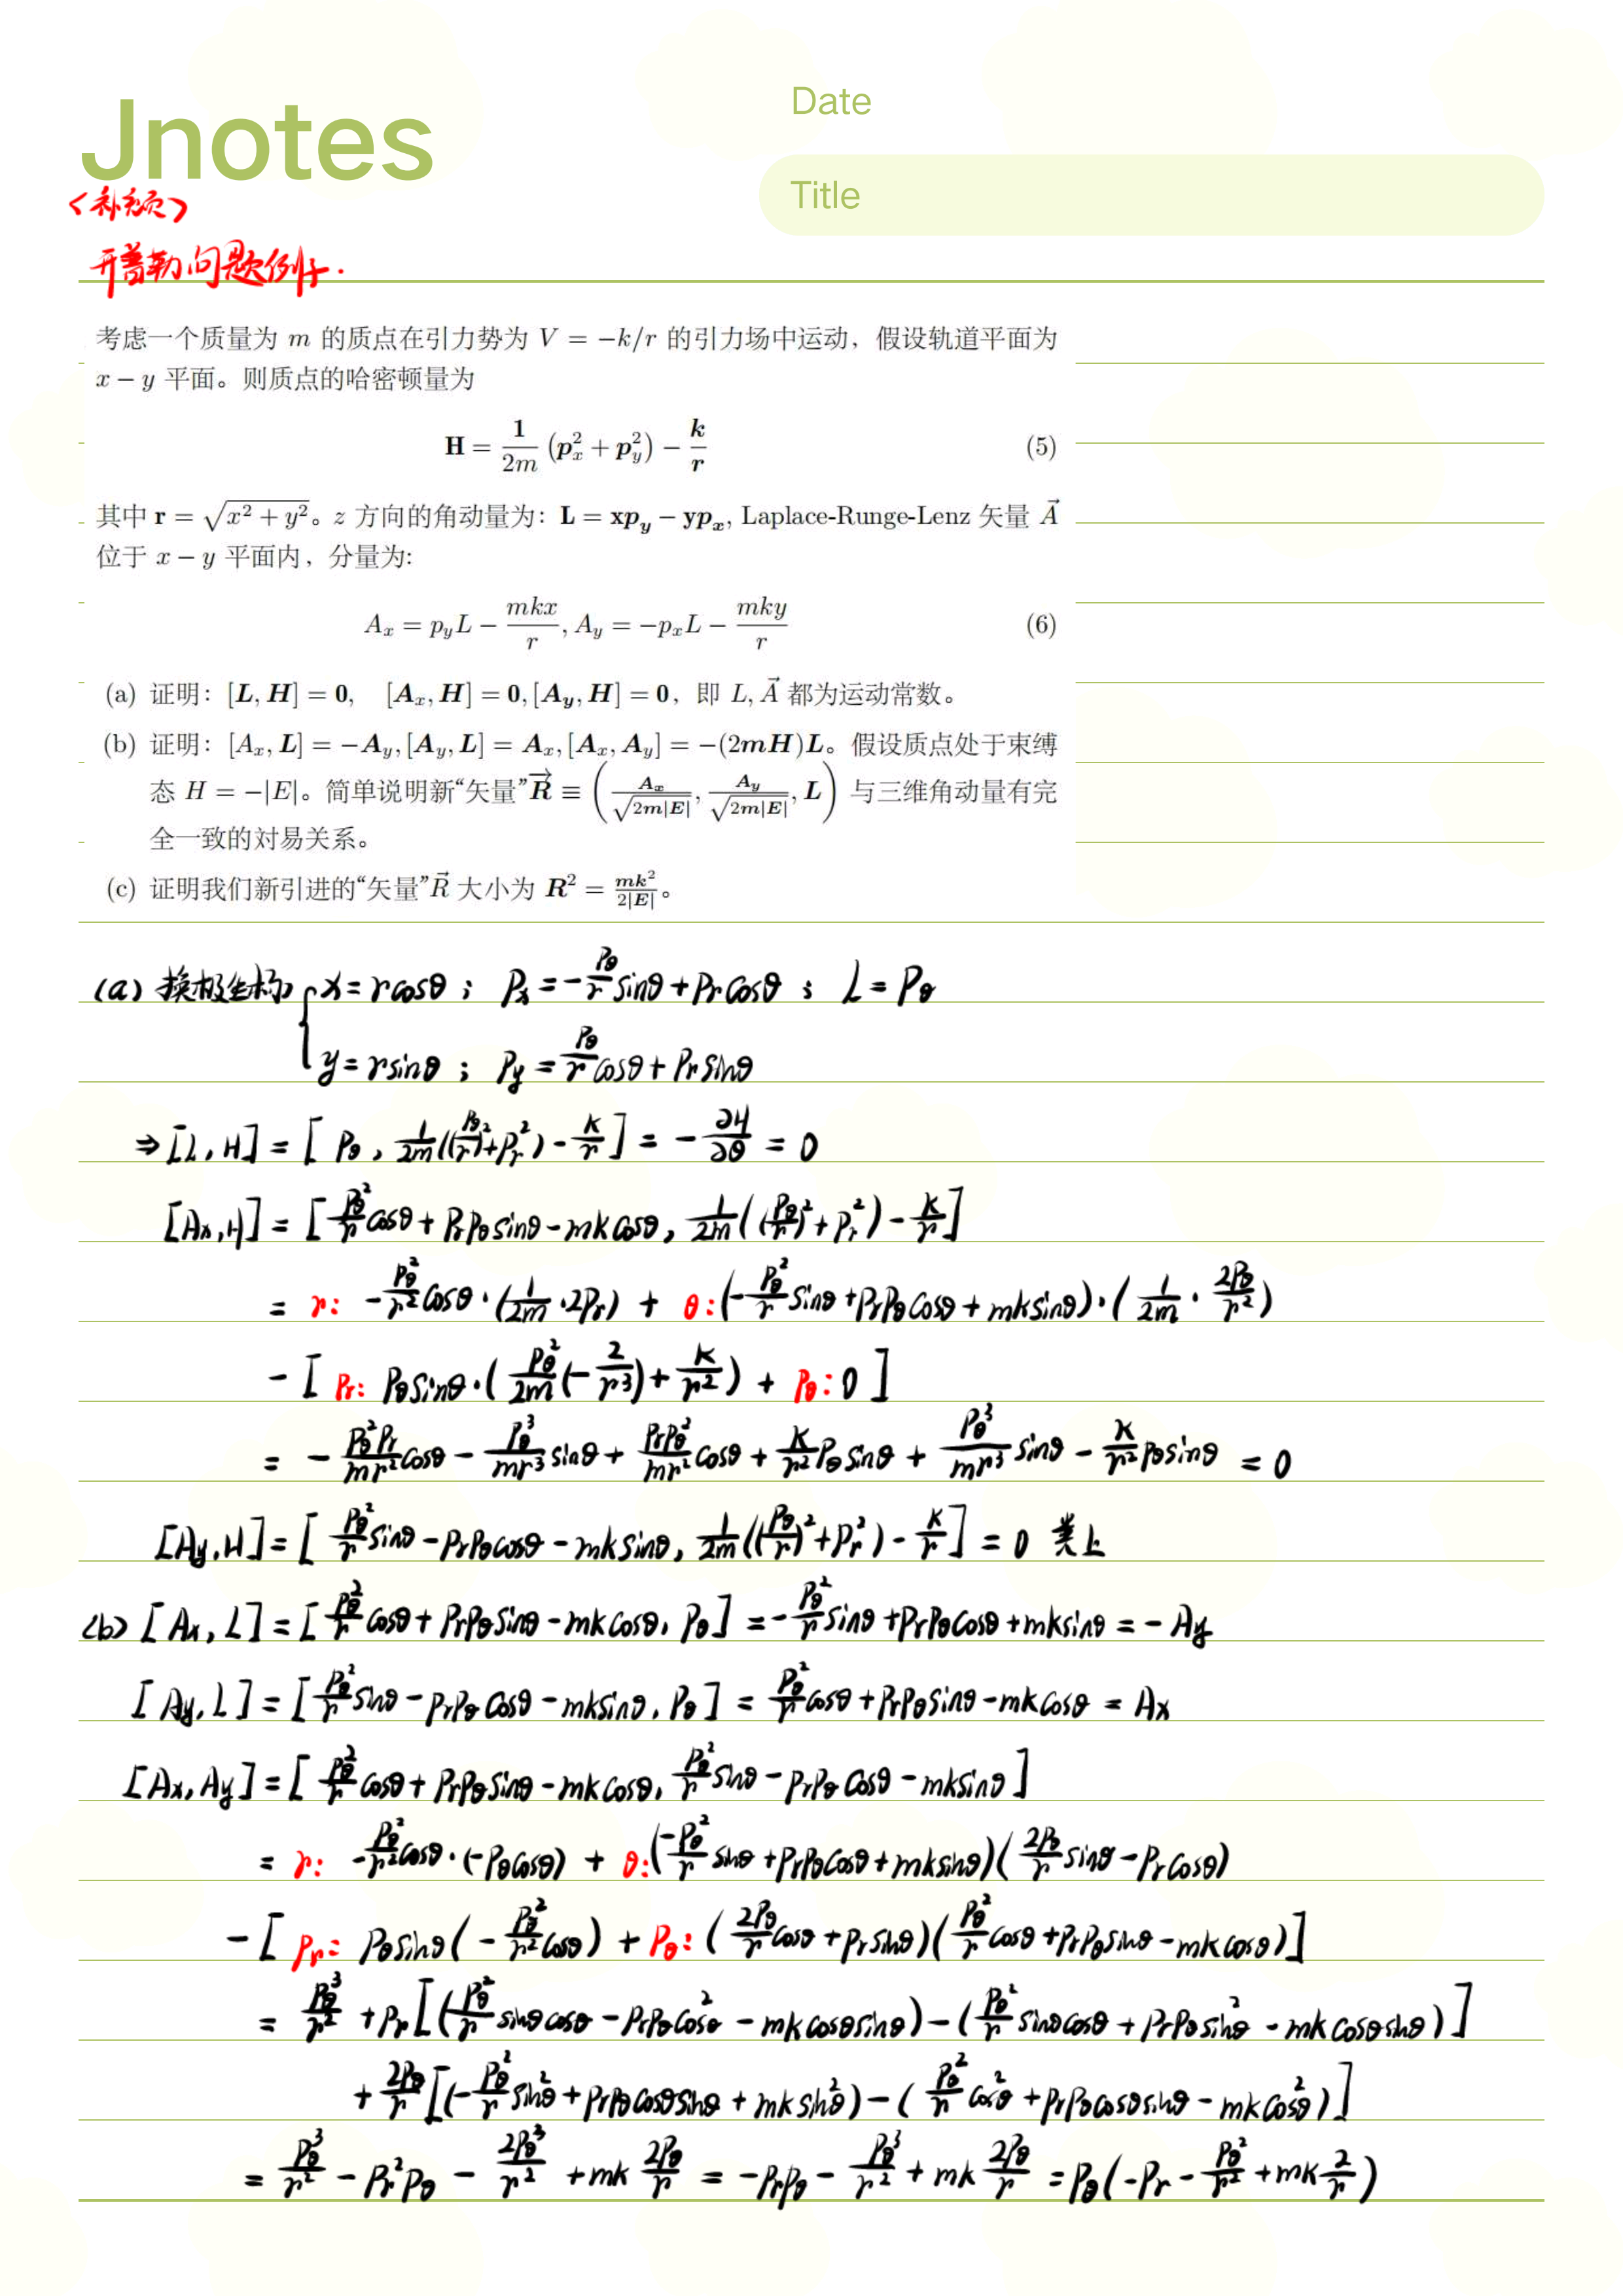 Jnotes
Date
Title
<补充页>
开普勒问题例子.
考虑一个质量为 m 的质点在引力势为 V = −k/r 的引力场中运动，假设轨道平面为
x − y 平面。则质点的哈密顿量为
H = 1/2m (p_x^2 + p_y^2) − k/r (5)
其中 r = √(x^2 + y^2)。z 方向的角动量为：L = xp_y − yp_x, Laplace-Runge-Lenz 矢量 A⃗
位于 x − y 平面内，分量为:
A_x = p_yL − mkx/r, A_y = −p_xL − mky/r (6)
(a) 证明：[L, H] = 0, [A_x, H] = 0, [A_y, H] = 0，即 L, A⃗ 都为运动常数。
(b) 证明：[A_x, L] = −A_y, [A_y, L] = A_x, [A_x, A_y] = −(2mH)L。假设质点处于束缚
态 H = −|E|。简单说明新“矢量”R⃗ ≡ (A_x/√(2m|E|), A_y/√(2m|E|), L) 与三维角动量有完
全一致的对易关系。
(c) 证明我们新引进的“矢量”R⃗ 大小为 R^2 = mk^2/2|E|。
(a) 换极坐标 { x = rcosθ ; P_x = −P_θ/r sinθ + P_r cosθ ; L = P_θ
y = rsinθ ; P_y = P_θ/r cosθ + P_r sinθ
⇒ [L, H] = [P_θ, 1/2m((P_θ/r)^2 + P_r^2) − k/r] = −∂H/∂θ = 0
[A_x, H] = [P_θ^2/r cosθ + P_rP_θ sinθ − mk cosθ, 1/2m((P_θ/r)^2 + P_r^2) − k/r]
= r: −P_θ^2/r^2 cosθ·(1/2m·2P_r) + θ:(−P_θ^2/r sinθ + P_rP_θ cosθ + mk sinθ)·(1/2m · 2P_θ/r^2)
− [P_r: P_θ sinθ·(P_θ^2/2m(−2/r^3) + k/r^2) + P_θ: 0]
= −P_θ^2P_r/mr^2 cosθ − P_θ^3/mr^3 sinθ + P_rP_θ^2/mr^2 cosθ + k/r^2 P_θ sinθ + P_θ^3/mr^3 sinθ − k/r^2 P_θ sinθ = 0
[A_y, H] = [P_θ^2/r sinθ − P_rP_θ cosθ − mk sinθ, 1/2m((P_θ/r)^2 + P_r^2) − k/r] = 0 类上
(b) [A_x, L] = [P_θ^2/r cosθ + P_rP_θ sinθ − mk cosθ, P_θ] = −P_θ^2/r sinθ + P_rP_θ cosθ + mk sinθ = −A_y
[A_y, L] = [P_θ^2/r sinθ − P_rP_θ cosθ − mk sinθ, P_θ] = P_θ^2/r cosθ + P_rP_θ sinθ − mk cosθ = A_x
[A_x, A_y] = [P_θ^2/r cosθ + P_rP_θ sinθ − mk cosθ, P_θ^2/r sinθ − P_rP_θ cosθ − mk sinθ]
= r: −P_θ^2/r^2 cosθ·(−P_θ cosθ) + θ:(−P_θ^2/r sinθ + P_rP_θ cosθ + mk sinθ)(2P_θ/r sinθ − P_r cosθ)
− [P_r: P_θ sinθ(−P_θ^2/r^2 cosθ) + P_θ: (2P_θ/r cosθ + P_r sinθ)(P_θ^2/r cosθ + P_rP_θ sinθ − mk cosθ)]
= P_θ^3/r^2 + P_r[(P_θ^2/r sinθcosθ − P_rP_θ cos^2θ − mk cosθsinθ) − (P_θ^2/r sinθcosθ + P_rP_θ sin^2θ − mk cosθsinθ)]
+ 2P_θ/r[(−P_θ^2/r sin^2θ + P_rP_θ cosθsinθ + mk sin^2θ) − (P_θ^2/r cos^2θ + P_rP_θ cosθsinθ − mk cos^2θ)]
= P_θ^3/r^2 − P_r^2P_θ − 2P_θ^3/r^2 + mk 2P_θ/r = −P_rP_θ − P_θ^3/r^2 + mk 2P_θ/r = P_θ(−P_r − P_θ^2/r^2 + mk 2/r)